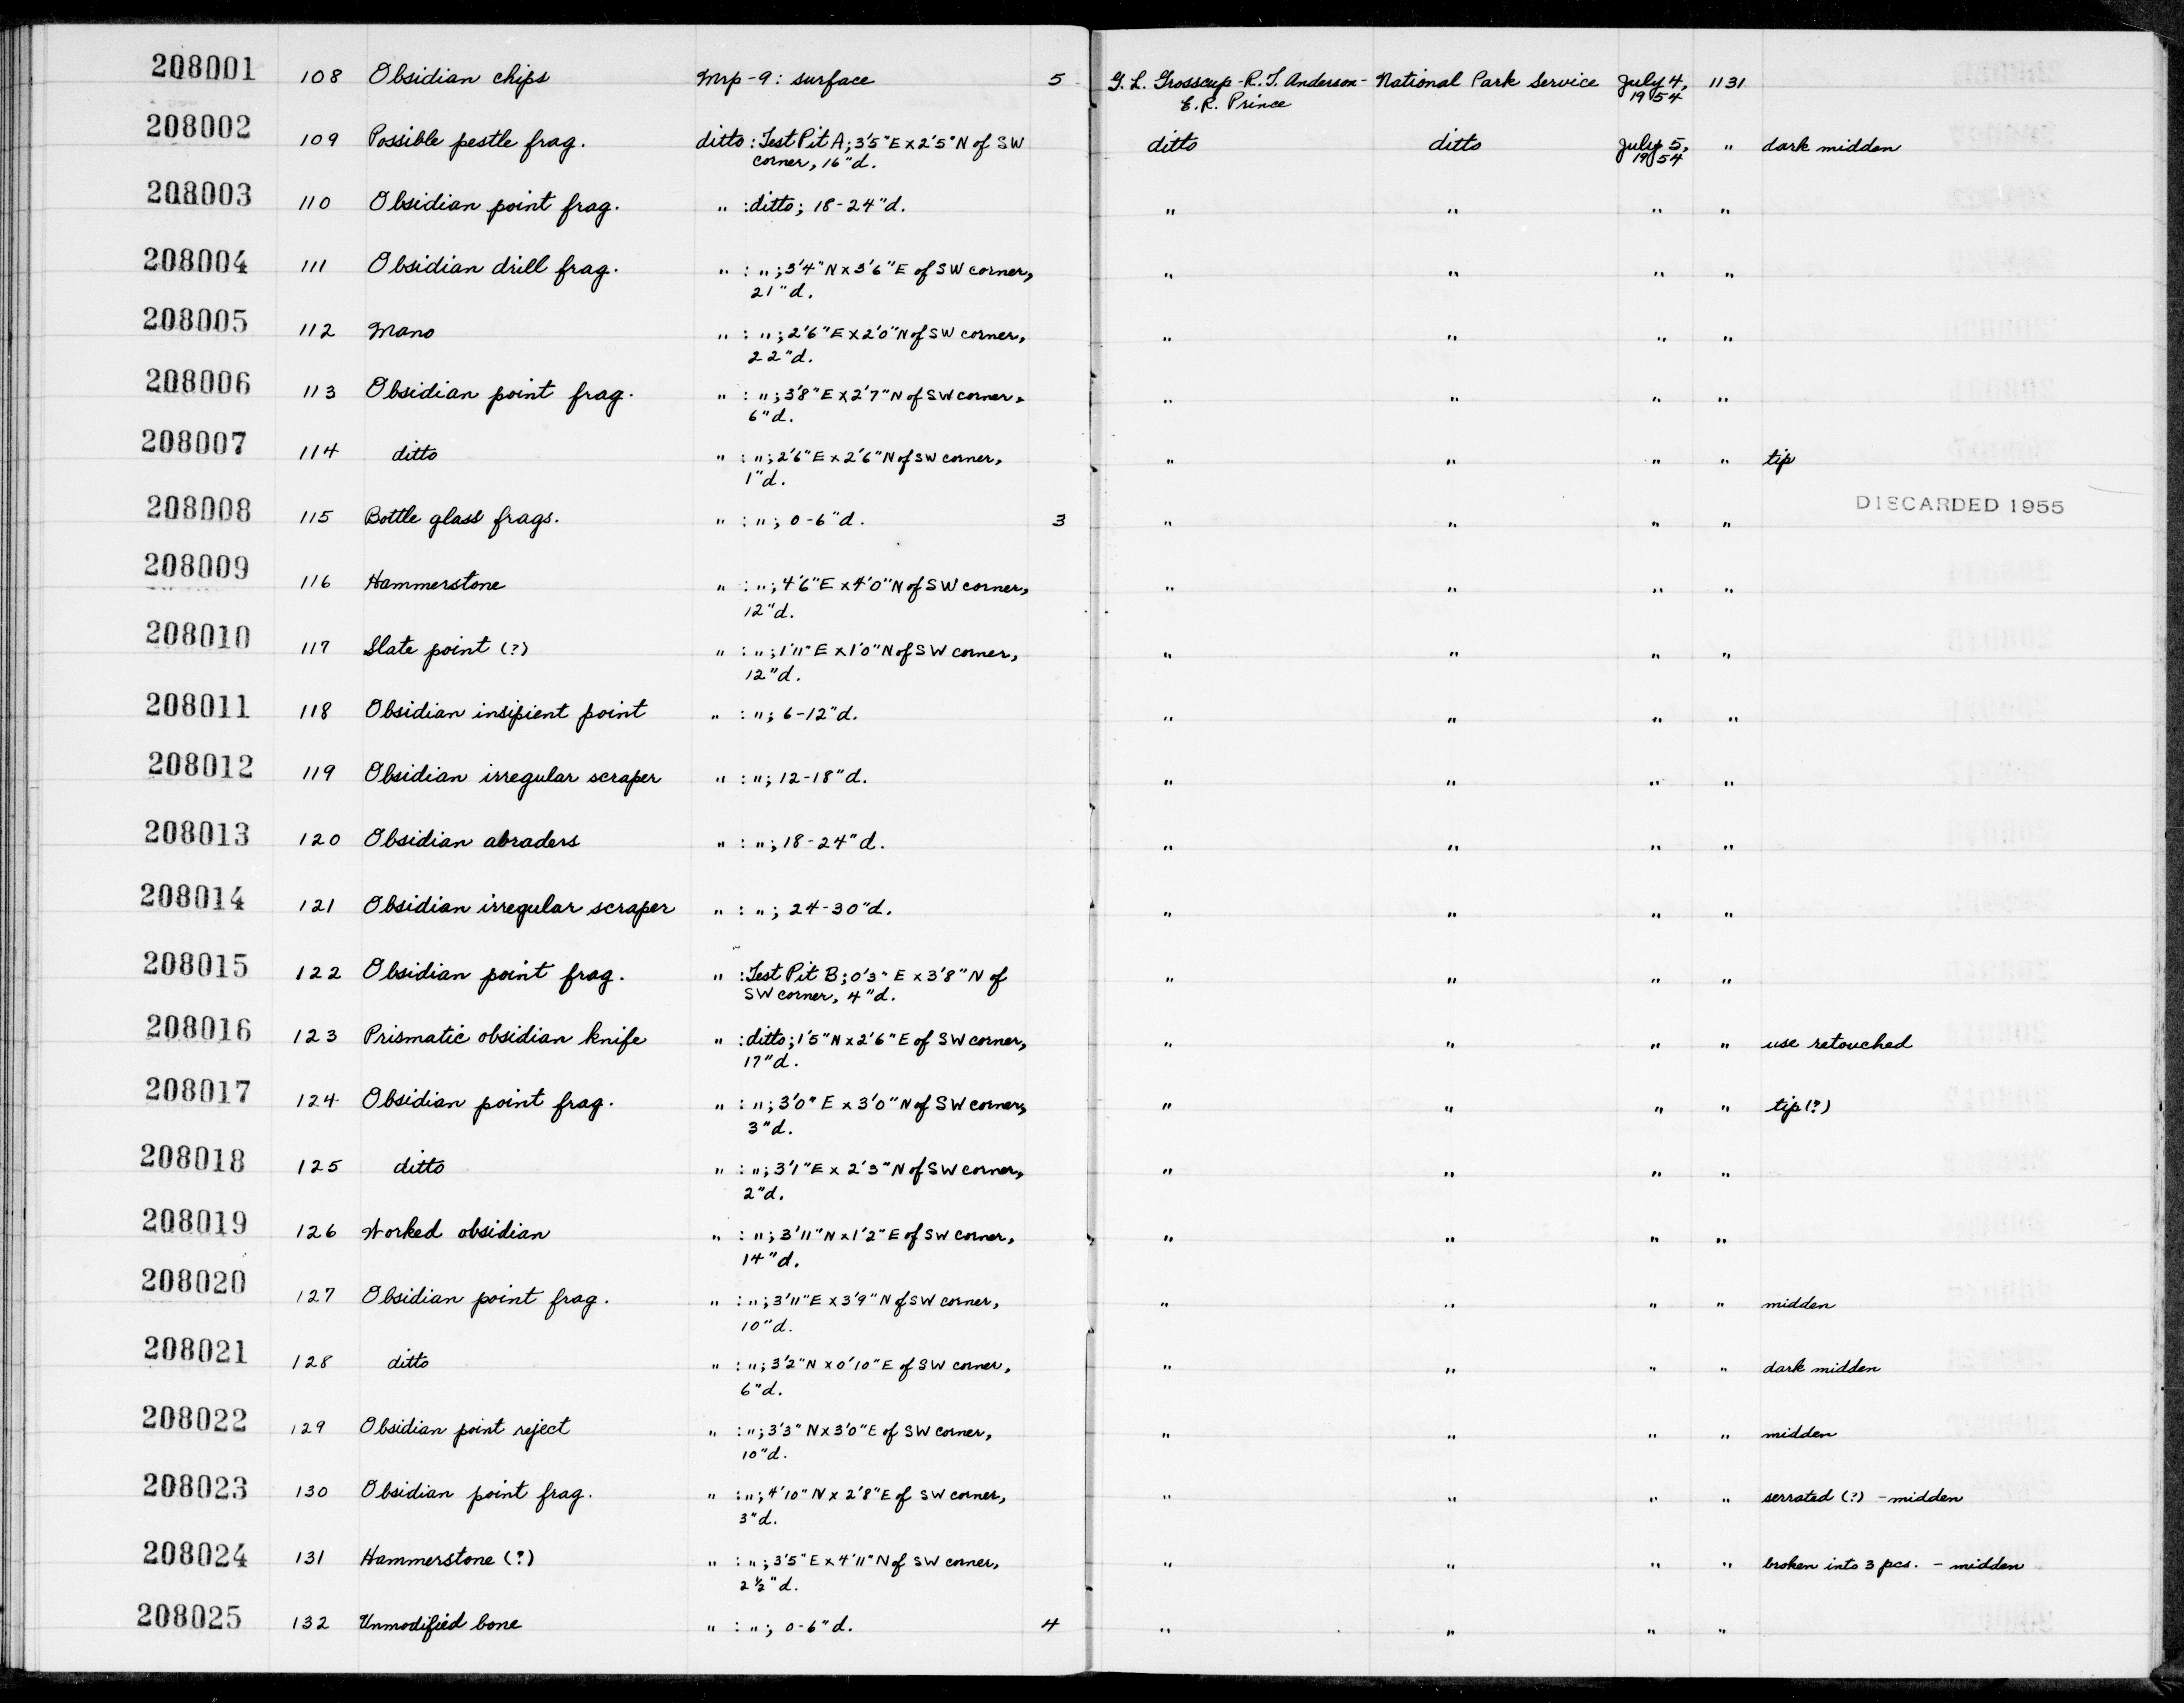 208001 108 Obsidian chips Mrp-9: surface 5 G. L. Grosscup-R.T. Anderson- National Park Service July 4, 1131
E.R. Prince 1954
208002 109 Possible pestle frag. ditto: Test Pit A; 3'5"E x 2'5"N of SW ditto ditto July 5, " dark midden
corner, 16"d. 1954
208003 110 Obsidian point frag. " : ditto; 18-24"d. " " " "
208004 111 Obsidian drill frag. " : "; 3'4"N x 3'6"E of SW corner, " " " "
21"d.
208005 112 Mano " : "; 2'6"E x 2'0"N of SW corner, " " " "
22"d.
208006 113 Obsidian point frag. " : "; 3'8"E x 2'7"N of SW corner, " " " "
6"d.
208007 114 ditto " : "; 2'6"E x 2'6"N of SW corner, " " " " tip
1"d.
208008 115 Bottle glass frags. " : "; 0-6"d. 3 " " " " DISCARDED 1955
208009 116 Hammerstone " : "; 4'6"E x 4'0"N of SW corner, " " " "
12"d.
208010 117 Slate point (?) " : "; 1'11"E x 1'0"N of SW corner, " " " "
12"d.
208011 118 Obsidian insipient point " : "; 6-12"d. " " " "
208012 119 Obsidian irregular scraper " : "; 12-18"d. " " " "
208013 120 Obsidian abraders " : "; 18-24"d. " " " "
208014 121 Obsidian irregular scraper " : "; 24-30"d. " " " "
208015 122 Obsidian point frag. " : Test Pit B; 0'3"E x 3'8"N of " " " "
SW corner, 4"d.
208016 123 Prismatic obsidian knife " : ditto; 1'5"N x 2'6"E of SW corner, " " " " use retouched
17"d.
208017 124 Obsidian point frag. " : "; 3'0"E x 3'0"N of SW corner, " " " " tip(?)
3"d.
208018 125 ditto " : "; 3'1"E x 2'3"N of SW corner, " " " "
2"d.
208019 126 Worked obsidian " : "; 3'11"N x 1'2"E of SW corner, " " " "
14"d.
208020 127 Obsidian point frag. " : "; 3'11"E x 3'9"N of SW corner, " " " " midden
10"d.
208021 128 ditto " : "; 3'2"N x 0'10"E of SW corner, " " " " dark midden
6"d.
208022 129 Obsidian point reject " : "; 3'3"N x 3'0"E of SW corner, " " " " midden
10"d.
208023 130 Obsidian point frag. " : "; 4'10"N x 2'8"E of SW corner, " " " " serrated (?) - midden
3"d.
208024 131 Hammerstone (?) " : "; 3'5"E x 4'11"N of SW corner, " " " " broken into 3 pcs. - midden
2½"d.
208025 132 Unmodified bone " : "; 0-6"d. 4 " " " "